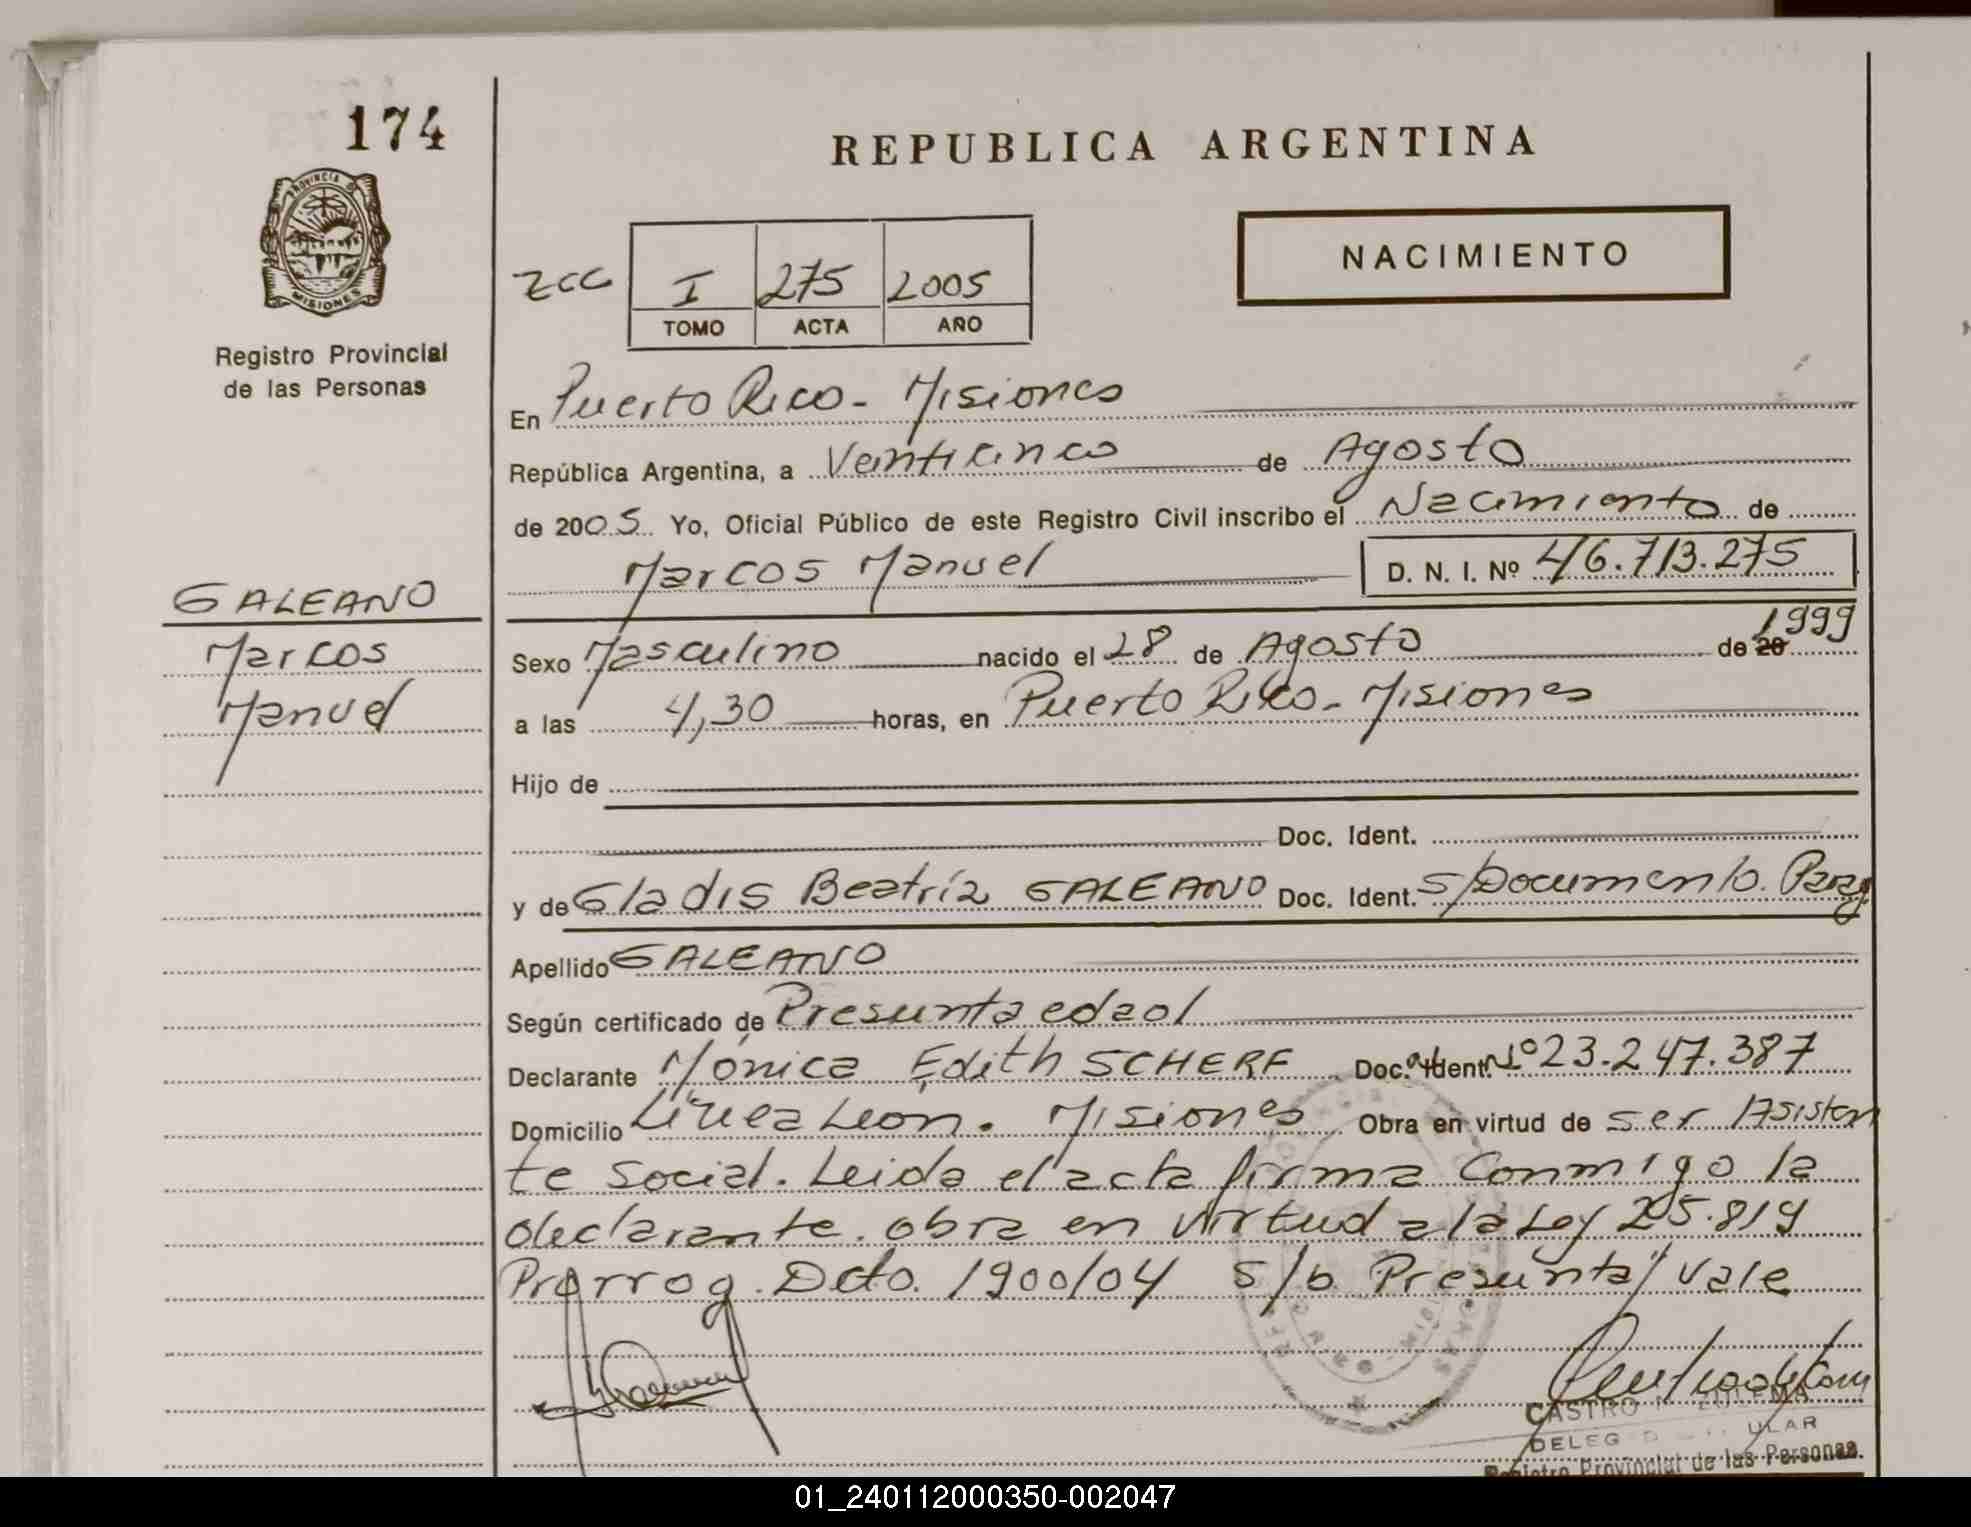 174
PROVINCIA DE
MISIONES
Registro Provincial
de las Personas
GALEANO
Marcos
Manuel
REPUBLICA ARGENTINA
NACIMIENTO
zcc I 275 2005
TOMO ACTA AÑO
En Puerto Rico - Misiones
República Argentina, a Veinticinco de Agosto
de 2005 Yo, Oficial Público de este Registro Civil inscribo el Nacimiento de
Marcos Manuel D. N. I. Nº 46.713.275
Sexo Masculino nacido el 28 de Agosto de 20 1999
a las 4,30 horas, en Puerto Rico - Misiones
Hijo de
Doc. Ident.
y de Gladis Beatríz GALEANO Doc. Ident. S/Documento. Parag
Apellido GALEANO
Según certificado de Presunta edad
Declarante Mónica Edith SCHERF Doc. Ident. Nº 23.247.387
Domicilio Línea León. Misiones Obra en virtud de ser Asisten
te Social. Leida el acta firma conmigo la
declarante. obra en virtud a la Ley 25.819
Prorrog. Dcto. 1900/04 S/b Presunta/Vale
CASTRO ZULEMA
Registro Provincial de las Personas.
01_240112000350-002047